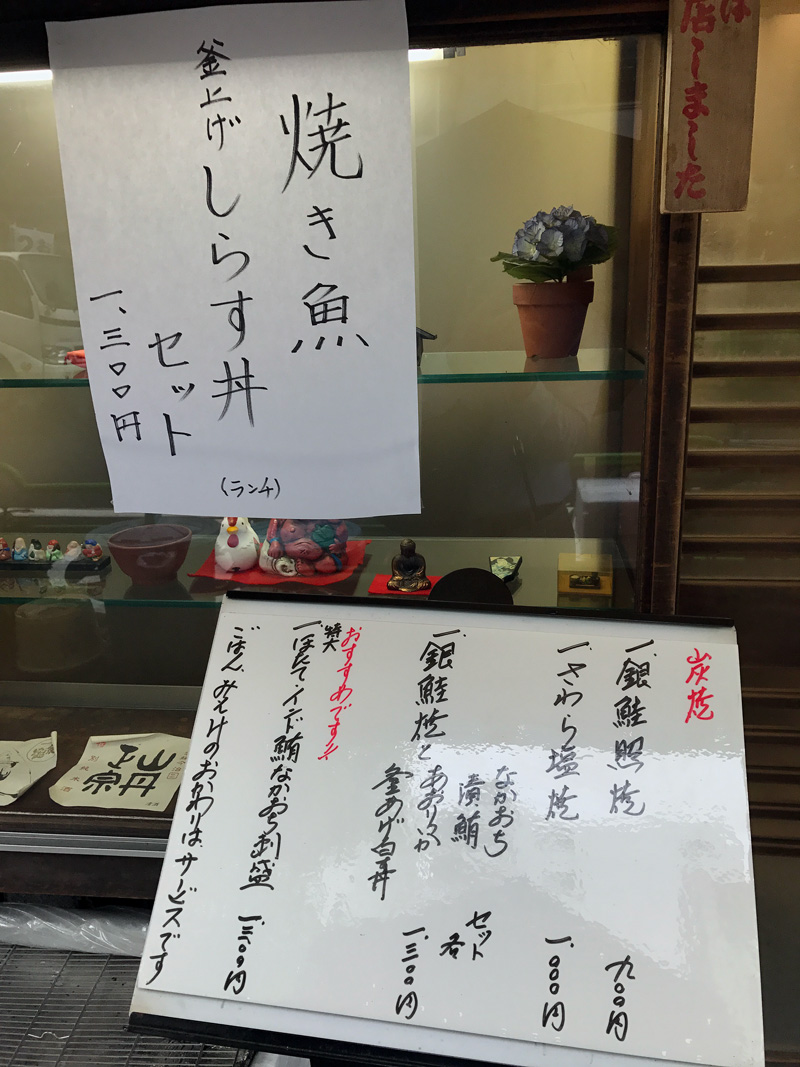 焼き魚
釜上げしらす丼
セット
一、三〇〇円
(ランチ)
は
店しました
炭焼
一、銀鮭照焼 九〇〇円
一、さわら塩焼 一、〇〇〇円
一、銀鮭焼と
なかおち
漬鮪
あおりいか
釜あげ白子丼
セット
各
一、三〇〇円
おすすめです!!
特大
一、ほたて・インド鮪なかおち刺盛 一、三〇〇円
ごはん、みそ汁のおかわりはサービスです
山丹正宗